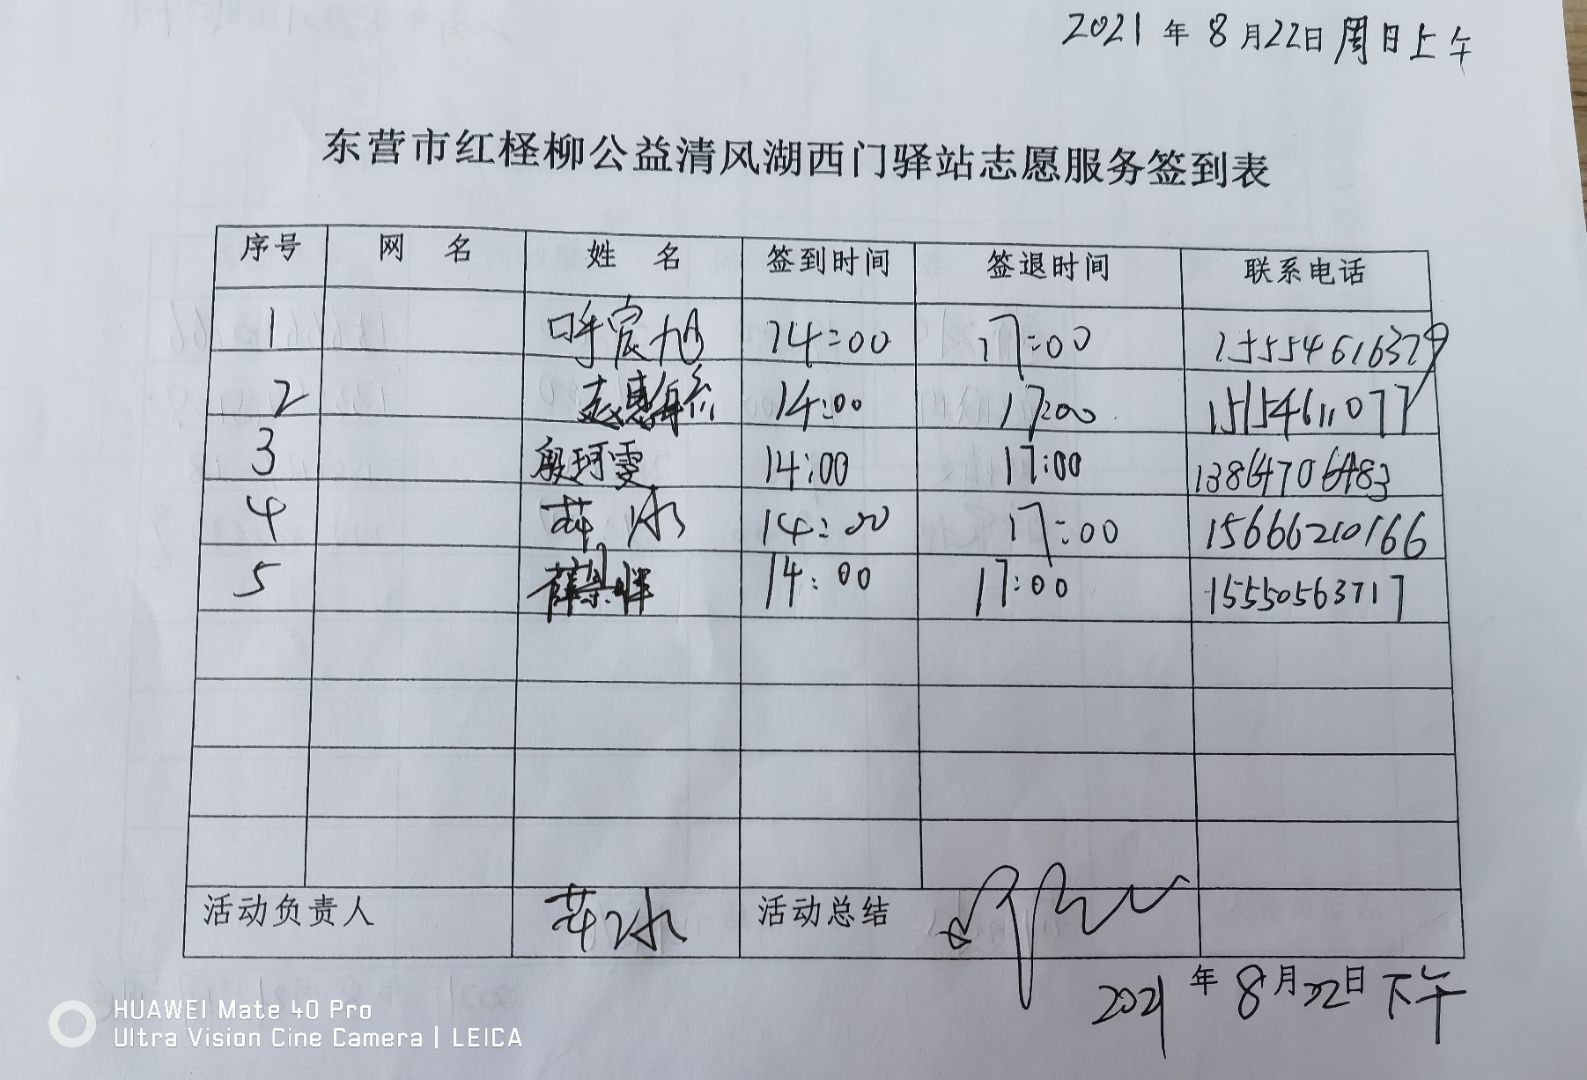 2021年8月22日周日上午
东营市红柽柳公益清风湖西门驿站志愿服务签到表
序号 网 名 姓 名 签到时间 签退时间 联系电话
1 呼宸旭 14:00 17:00 15554616379
2 14:00 17:00 15154611077
3 殷珂雯 14:00 17:00 13864706483
4 冰 14:00 17:00 15666210166
5 薛 14:00 17:00 15550563717
活动负责人 冰 活动总结
2021年8月22日下午
HUAWEI Mate 40 Pro
Ultra Vision Cine Camera | LEICA